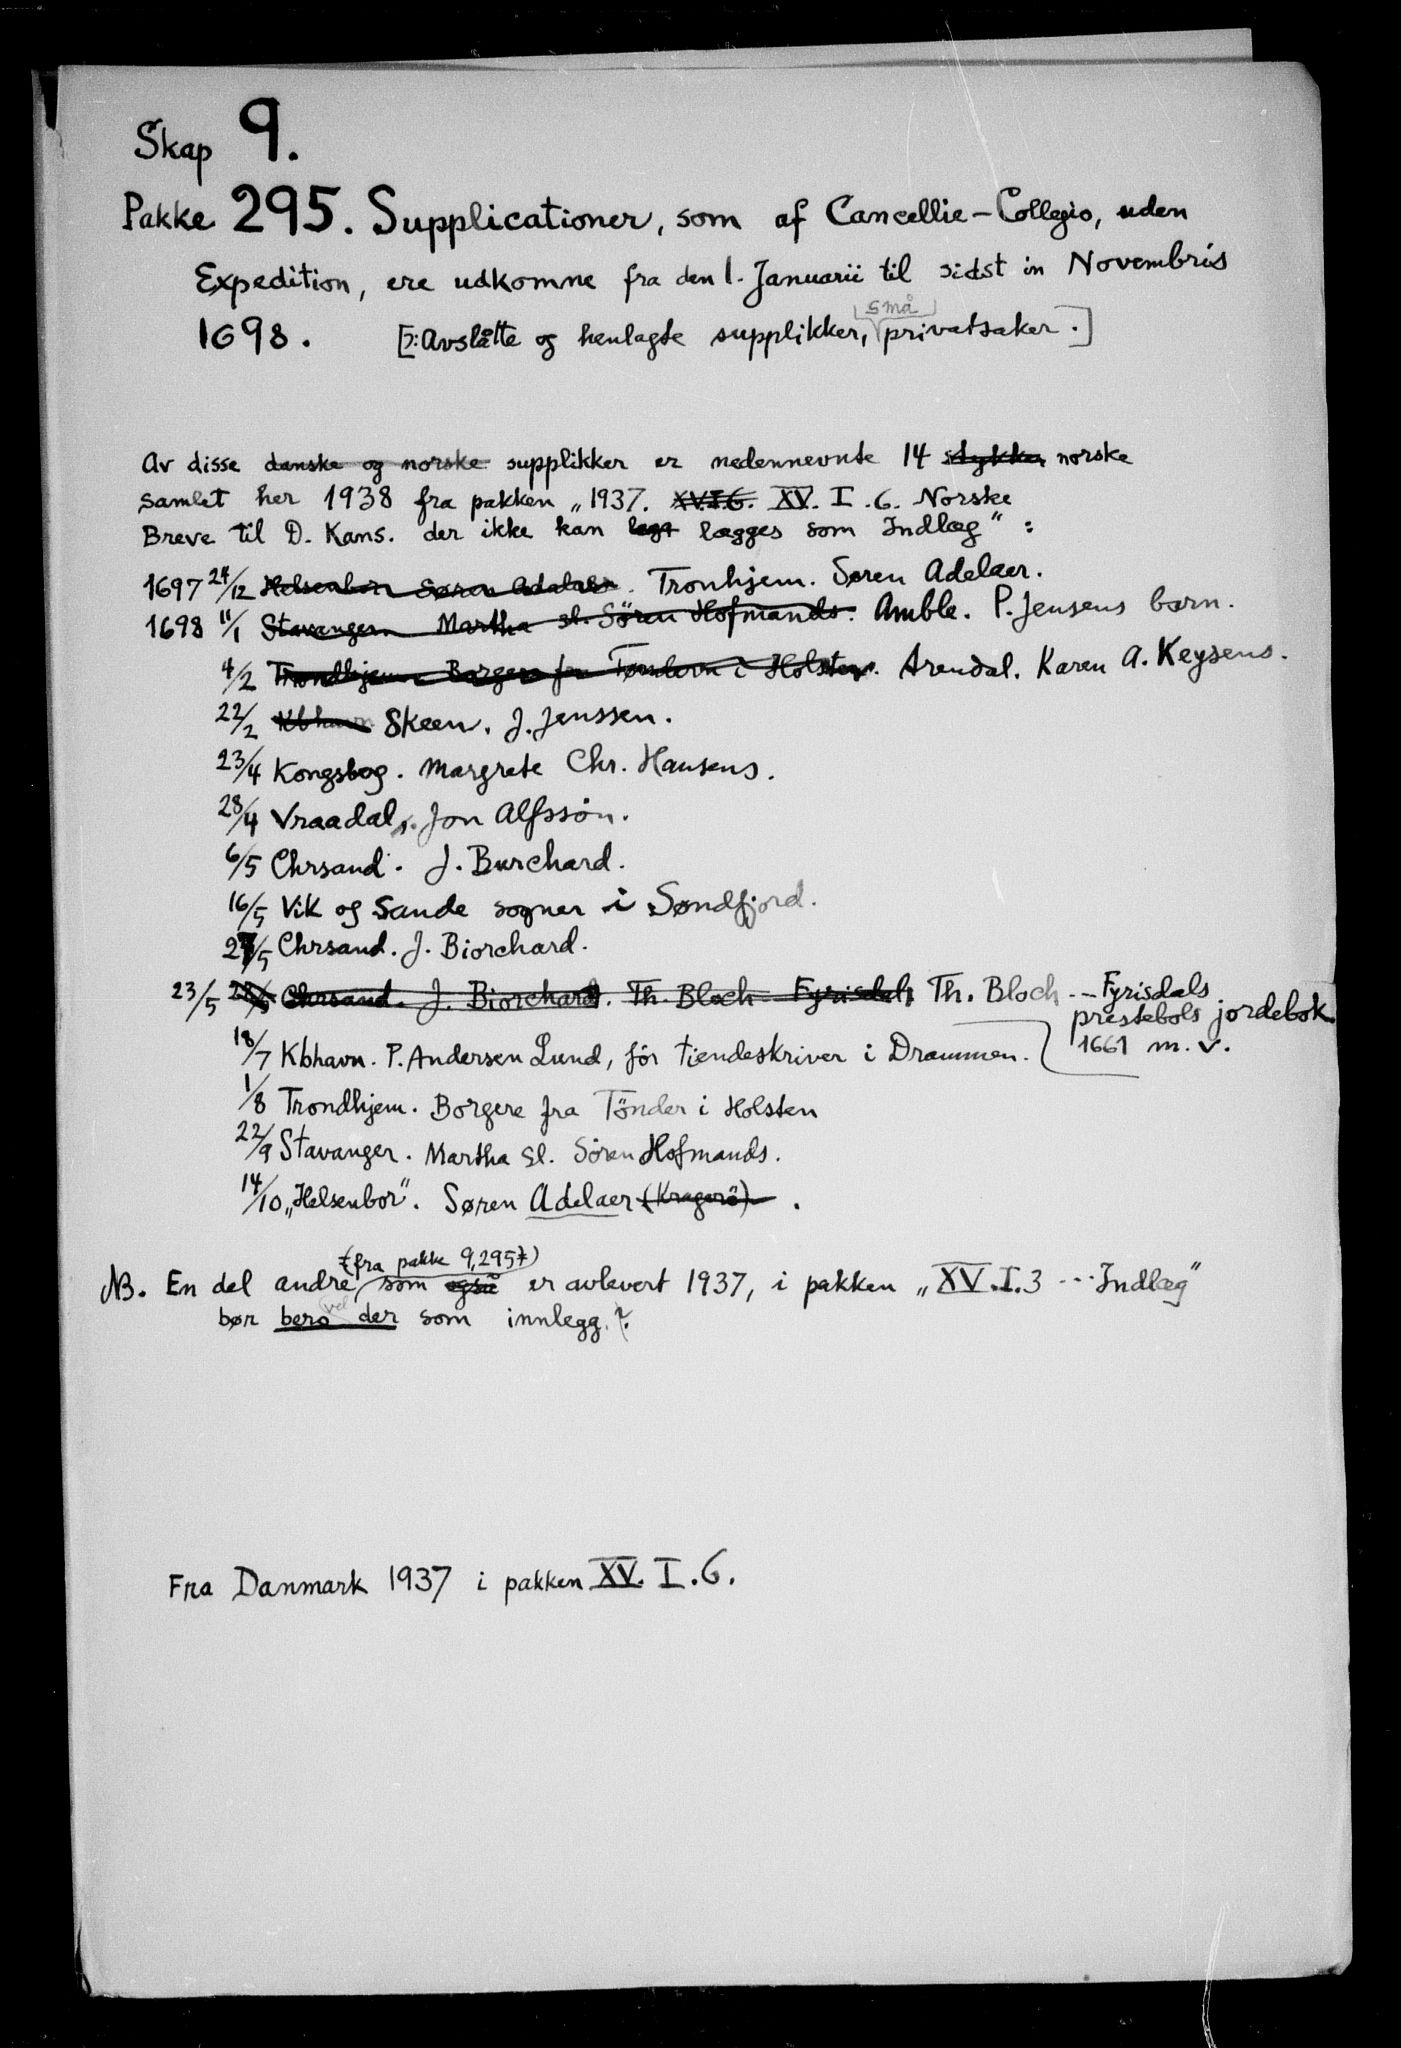 Skap 9.
Pakke 295. Supplicationer, som af Cancellie-Collegio, uden
Expedition, ere udkomne fra den 1. Januarii til sidst in Novembris
1698. [ɔ: Avslåtte og henlagte supplikker, små privatsaker.]
Av disse danske og norske supplikker er nedennevnte 14 stykker norske
samlet her 1938 fra pakken „1937. XV.I.6. XV. I. 6. Norske
Breve til D. Kans. der ikke kan legt lægges som Indlæg":
1697 24/12 Helsenbor Søren Adelaer. Tronhjem. Søren Adelaer.
1698 11/1 Stavanger. Martha sl. Sören Hofmands. Amble. P. Jensens barn.
4/2 Trondhjem. Borgere fra Tøndern i Holsten. Arendal. Karen A. Keysens.
22/2 Kbhavn Skeen. J. Jenssen.
23/4 Kongsbog. Margrete Chr. Hansens.
28/4 Vraadal. Jon Alfssön.
6/5 Chrsand. J. Burchard.
16/5 Vik og Sande sogner i Søndfjord.
27/5 Chrsand. J. Biorchard.
23/5 28/5 Chrsand. J. Biorchard. Th. Bloch Fyrisdal. Th. Bloch -- Fyrisdals
prestebols jordebok
1661 m. v.
18/7 Kbhavn. P. Andersen Lund, för tiendeskriver i Drammen.
1/8 Trondhjem. Borgere fra Tönder i Holsten
22/9 Stavanger. Martha sl. Sören Hofmands.
14/10 „Helsenbor". Søren Adelaer (Kragerö).
NB. En del andre (fra pakke 9,295) som også er avlevert 1937, i pakken „XV.I.3 --- Indlæg"
bør bero vel der som innlegg.?
Fra Danmark 1937 i pakken XV. I. 6.